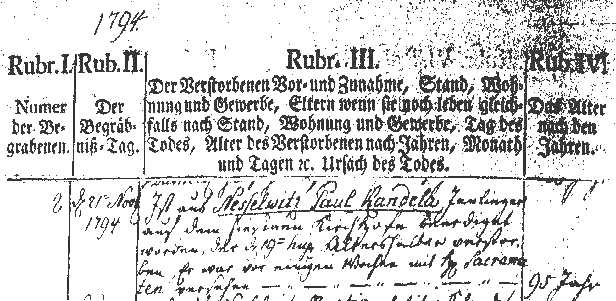 1794.
Rubr. I. Rub. II. Rubr. III. Rub. IV.
Numer der Be- grabenen.
Der Begräb- niß-Tag.
Der Verstorbenen Vor- und Zunahme, Stand, Woh-
nung und Gewerbe, Eltern wenn sie noch leben gleich-
falls nach Stand, Wohnung und Gewerbe, Tag des
Todes, Alter des Verstorbenen nach Jahren, Monath
und Tagen ꝛc. Ursach des Todes.
Das Alter nach den Jahren.
d 21 Nov
1794
Ist aus Nesselwitz Paul Kandela
auf dem Kirchhofe beerdigt
worden, der d 19ten huj. Altershalber verstor-
ben. Er war vor einigen Wochen mit Sacramen
ten versehen
95 Jahr